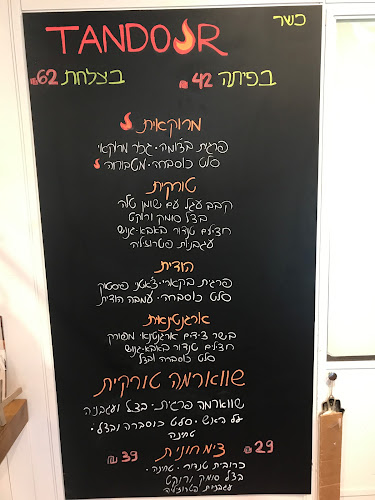 כשר
TANDOOR
בפיתה 42 ₪ בצלחת 62 ₪
מרוקאית
פרגית בצ'ומה · גזר מרוקאי
סלט כוסברה · מטבוחה
טורקית
קבב עגל עם שומן טלה
בצל סומק ורוקט
חצילים טנדור באבא-גנוש
עגבניות פטרוזיליה
הודית
פרגית בקארי · צ'אטני פוסטיק
סלט כוסברה · עמבה הודית
ארגנטינאית
בשר צ.ד.ם ארגנטינאי מפורק
חצילים טנדור באבא-גנוש
סלט כוסברה ובצל
שווארמה טורקית
שווארמה פרגית · בצל ועגבניה
על האש · סלט כוסברה ובצל ·
טחינה
צימחונית 29 ₪ 39 ₪
כרובית טנדור · טחינה ·
בצל סומק ורוקט
עגבניות פטרוזיליה